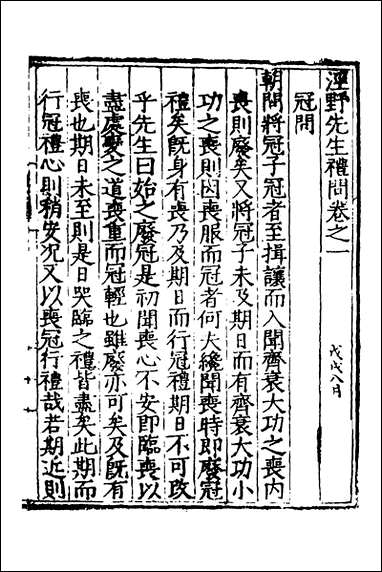 涇野先生禮問卷之一
戊戌八月
冠問
朝問將冠子冠者至揖讓而入聞齊衰大功之喪内
喪則廢矣又將冠子未及期日而有齊衰大功小
功之喪則因喪服而冠者何大纔聞喪時即廢冠
禮矣旣身有喪乃及期日而行冠禮期日不可改
乎先生曰始之廢冠是初聞喪心不安即臨喪以
盡處變之道喪重而冠輕也雖廢亦可矣及旣有
喪也期日未至則是日哭臨之禮皆盡矣此期而
行冠禮心則稍安况又以喪冠行禮哉若期近則